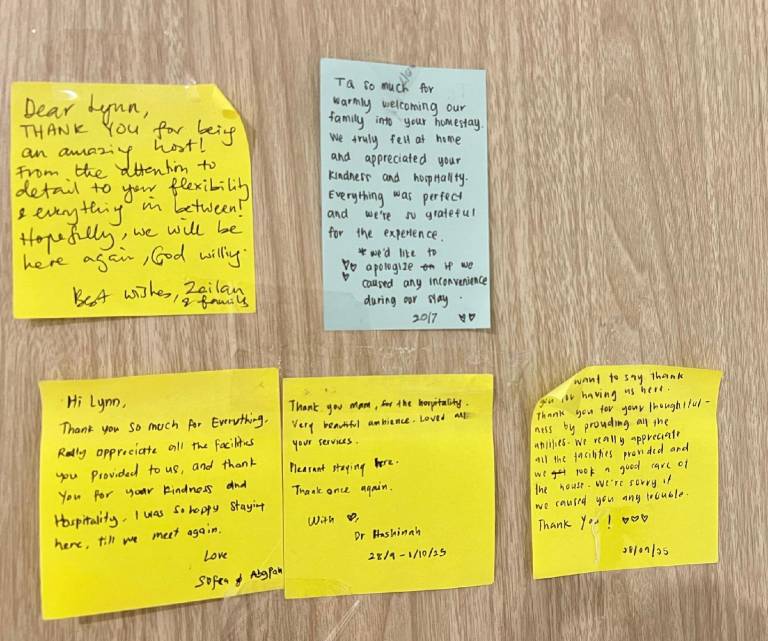 Dear Lynn,
THANK YOU for being
an amazing host!
From the attention to
detail to your flexibility
& everything in between!
Hopefully, we will be
here again, God willing.
Best wishes, Zailan
& family
Ta so much for
warmly welcoming our
family into your homestay.
We truly fell at home
and appreciated your
kindness and hospitality.
Everything was perfect
and we're su grateful
for the experience.
* we'd like to
apologize if we
caused any inconvenience
during our stay.
20/7
Hi Lynn,
Thank you so much for Everything.
Really appreciate all the Facilities
you Provided to us, and thank
You for your kindness and
Hospitality. I was so happy staying
here, till we meet again.
Love
Sofea &
Thank you mam, for the hospitality.
Very beautiful ambience. Loved all
your services.
Pleasant staying here.
Thank once again.
With ♡,
Dr Hashimah
28/9 - 1/10/25
want to say thank
you for having us here.
Thank you for your thoughtful-
ness by providing all the
We really appreciate
all the facilities provided and
we took a good care of
the house. We're sorry if
we caused you any trouble.
Thank You! ♡♡♡
28/09/25